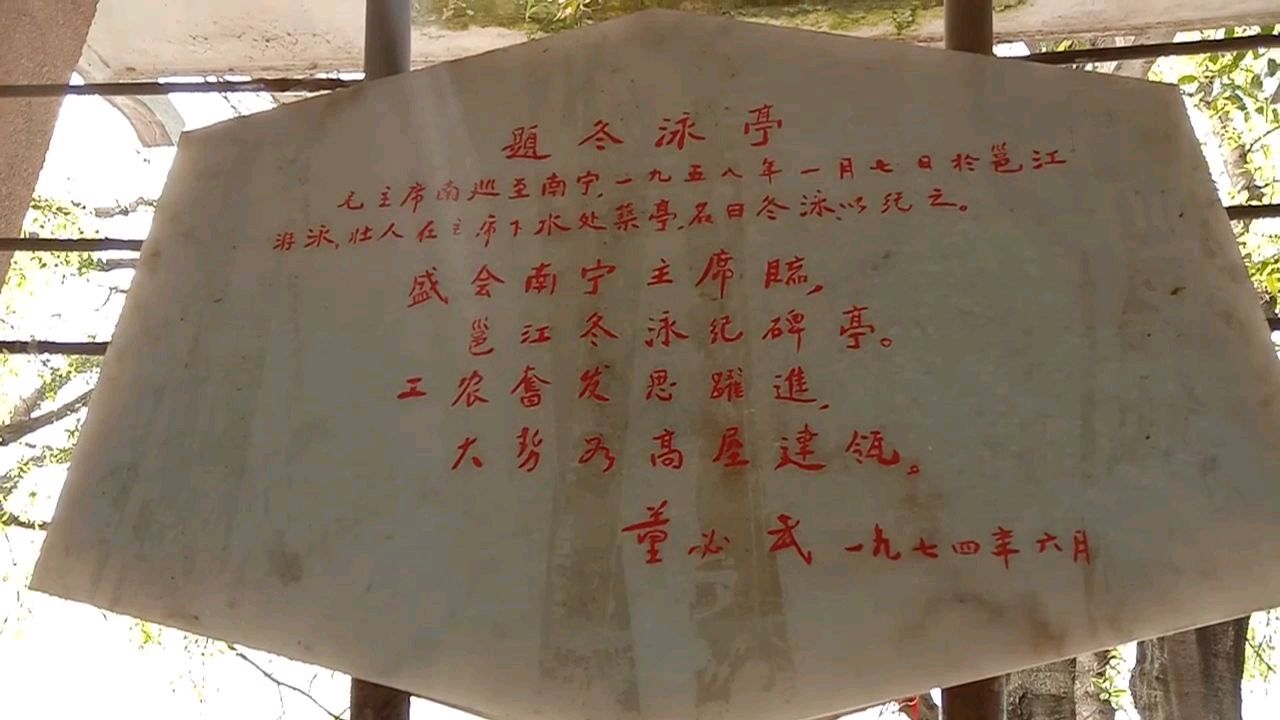 題冬泳亭
毛主席南巡至南宁,一九五八年一月七日於邕江
游泳,壮人在主席下水处築亭,名曰冬泳,以纪之。
盛会南宁主席臨,
邕江冬泳纪碑亭。
工农奮发思躍進,
大势若高屋建瓴。
董必武 一九七四年六月